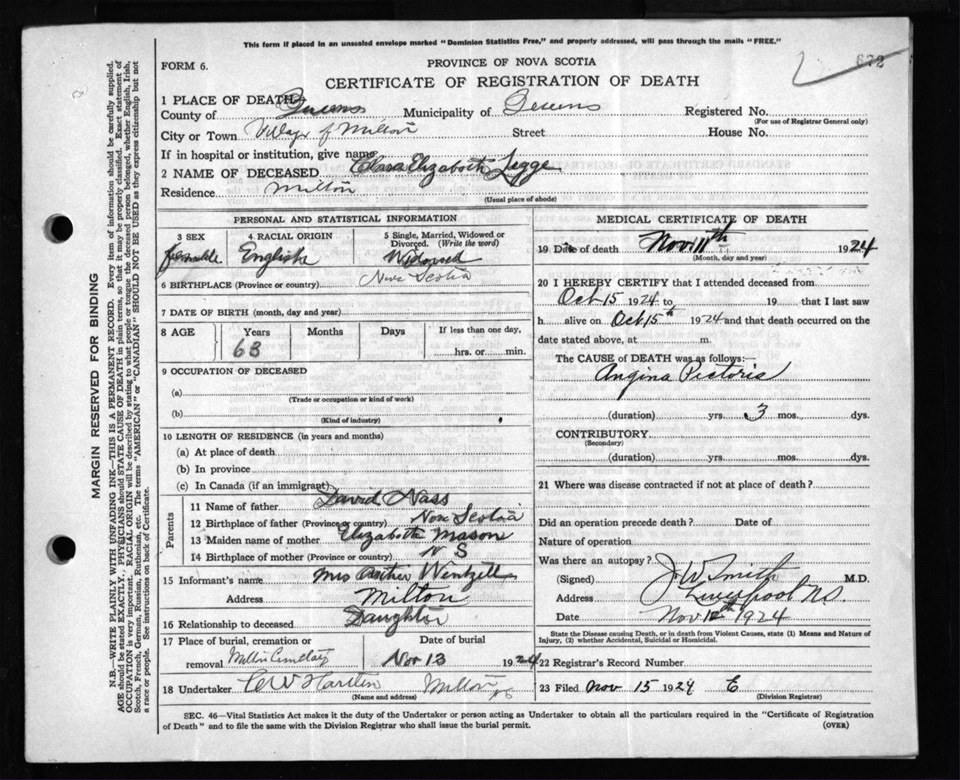 This form if placed in an unsealed envelope marked "Dominion Statistics Free," and properly addressed, will pass through the mails "FREE."
FORM 6.
PROVINCE OF NOVA SCOTIA
672
CERTIFICATE OF REGISTRATION OF DEATH
1 PLACE OF DEATH—
County of Queens Municipality of Queens Registered No.
(For use of Registrar General only)
City or Town Village of Milton Street House No.
If in hospital or institution, give name
2 NAME OF DECEASED Clara Elizabeth Legge
Residence Milton
(Usual place of abode)
PERSONAL AND STATISTICAL INFORMATION
3 SEX 4 RACIAL ORIGIN 5 Single, Married, Widowed or Divorced. (Write the word)
female English Widowed
6 BIRTHPLACE (Province or country) Nova Scotia
7 DATE OF BIRTH (month, day and year)
8 AGE Years Months Days If less than one day,
63 hrs. or min.
9 OCCUPATION OF DECEASED
(a)
(Trade or occupation or kind of work)
(b)
(Kind of industry)
10 LENGTH OF RESIDENCE (in years and months)
(a) At place of death
(b) In province
(c) In Canada (if an immigrant)
Parents
11 Name of father David Nass
12 Birthplace of father (Province or country) Nova Scotia
13 Maiden name of mother Elizabeth Mason
14 Birthplace of mother (Province or country) N S
15 Informant's name Mrs Arther Wentzell
Address Milton
16 Relationship to deceased Daughter
17 Place of burial, cremation or Date of burial
removal Milton Cemetery Nov 13 1924
18 Undertaker C W Milton NS
(Name and address)
MEDICAL CERTIFICATE OF DEATH
19 Date of death Nov 11th 1924
(Month, day and year)
20 I HEREBY CERTIFY that I attended deceased from
Oct 15 1924 to 19 that I last saw
h alive on Oct 15th 1924 and that death occurred on the
date stated above, at m.
The CAUSE OF DEATH was as follows:—
Angina Pectoris
(duration) yrs. 3 mos. dys.
CONTRIBUTORY
(Secondary)
(duration) yrs. mos. dys.
21 Where was disease contracted if not at place of death?
Did an operation precede death? Date of
Nature of operation
Was there an autopsy?
(Signed) J W Smith M.D.
Address Liverpool N.S.
Date Nov 12th 1924
State the Disease causing Death, or in death from Violent Causes, state (1) Means and Nature of Injury, (2) whether Accidental, Suicidal or Homicidal.
22 Registrar's Record Number
23 Filed Nov 15 1924 E
(Division Registrar)
SEC. 46—Vital Statistics Act makes it the duty of the Undertaker or person acting as Undertaker to obtain all the particulars required in the "Certificate of Registration
of Death" and to file the same with the Division Registrar who shall issue the burial permit. (OVER)
MARGIN RESERVED FOR BINDING
N.B.—WRITE PLAINLY WITH UNFADING INK—THIS IS A PERMANENT RECORD. Every item of information should be carefully supplied.
AGE should be stated EXACTLY. PHYSICIANS should STATE CAUSE OF DEATH in plain terms, so that it may be properly classified. Exact statement of
OCCUPATION is very important. RACIAL ORIGIN will be described by stating to what people or tongue the deceased person belonged, whether English, Irish,
Scotch, French, German, Russian, Ruthenian, etc. The terms "AMERICAN" or "CANADIAN" SHOULD NOT BE USED as they express citizenship but not
a race or people. See instructions on back of Certificate.